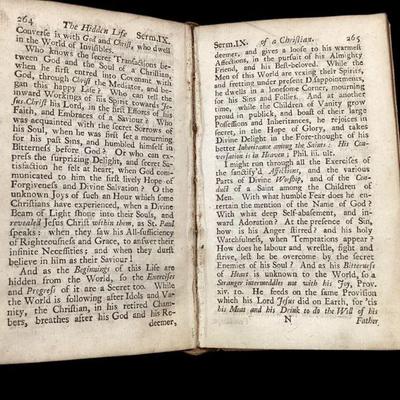 264 The Hidden Life Serm.IX.
Converse is with God and Christ, who dwell
in the World of Invisibles.
Who knows the secret Transactions be-
tween God and the Soul of a Christian,
when he first entred into Covenant with
God, through Christ the Mediator, and be-
gan this happy Life? Who can tell the
inward Workings of his Spirit towards Je-
sus Christ his Lord, in the first Efforts of his
Faith, and Embraces of a Saviour? Who
was acquainted with the secret Sorrows of
his Soul, when he was first set a mourning
for his past Sins, and humbled himself in
Bitterness before God? Or who can ex-
press the surprizing Delight, and secret Sa-
tisfaction he felt at heart, when God com-
municated to him the first lively Hope of
Forgiveness and Divine Salvation? O the
unknown Joys of such an Hour which some
Christians have experienced, when a Divine
Beam of Light shone into their Souls, and
revealed Jesus Christ within them, as St. Paul
speaks: when they saw his All-sufficiency
of Righteousness and Grace, to answer their
infinite Necessities; and when they durst
believe in him as their Saviour!
And as the Beginnings of this Life are
hidden from the World, so the Exercises
and Progress of it are a Secret too. While
the World is following after Idols and Va-
nity, the Christian, in his retired Cham-
bers, breathes after his God and his Re-
deemer,
Serm.IX. of a Christian. 265
deemer, and gives a loose to his warmest
Affections, in the pursuit of his Almighty
Friend, and his Best-beloved. While the
Men of this World are vexing their Spirits,
and fretting under present Disappointments,
he dwells in a lonesome Corner, mourning
for his Sins and Follies. And at another
time, while the Children of Vanity grow
proud in publick, and boast of their large
Possessions and Inheritances, he rejoices in
secret, in the Hope of Glory, and takes
Divine Delight in the Fore-thought of his
better Inheritance among the Saints: His Con-
versation is in Heaven; Phil. iii. ult.
I might run through all the Exercises of
the sanctify'd Affections, and the various
Parts of Divine Worship, and of the Con-
duct of a Saint among the Children of
Men. With what humble Fear does he en-
tertain the mention of the Name of God?
With what deep Self-abasement, and in-
ward Adoration? At the presence of Sin,
how is his Anger stirred? and his holy
Watchfulness, when Temptations appear?
How does he labour and wrestle, fight and
strive, lest he be overcome by the secret
Enemies of his Soul? And as his Bitterness
of Heart is unknown to the World, so a
Stranger intermeddles not with his Joy, Prov.
xiv. 10. He feeds on the same Provision
which his Lord Jesus did on Earth, for 'tis
his Meat and his Drink to do the Will of his
N Father